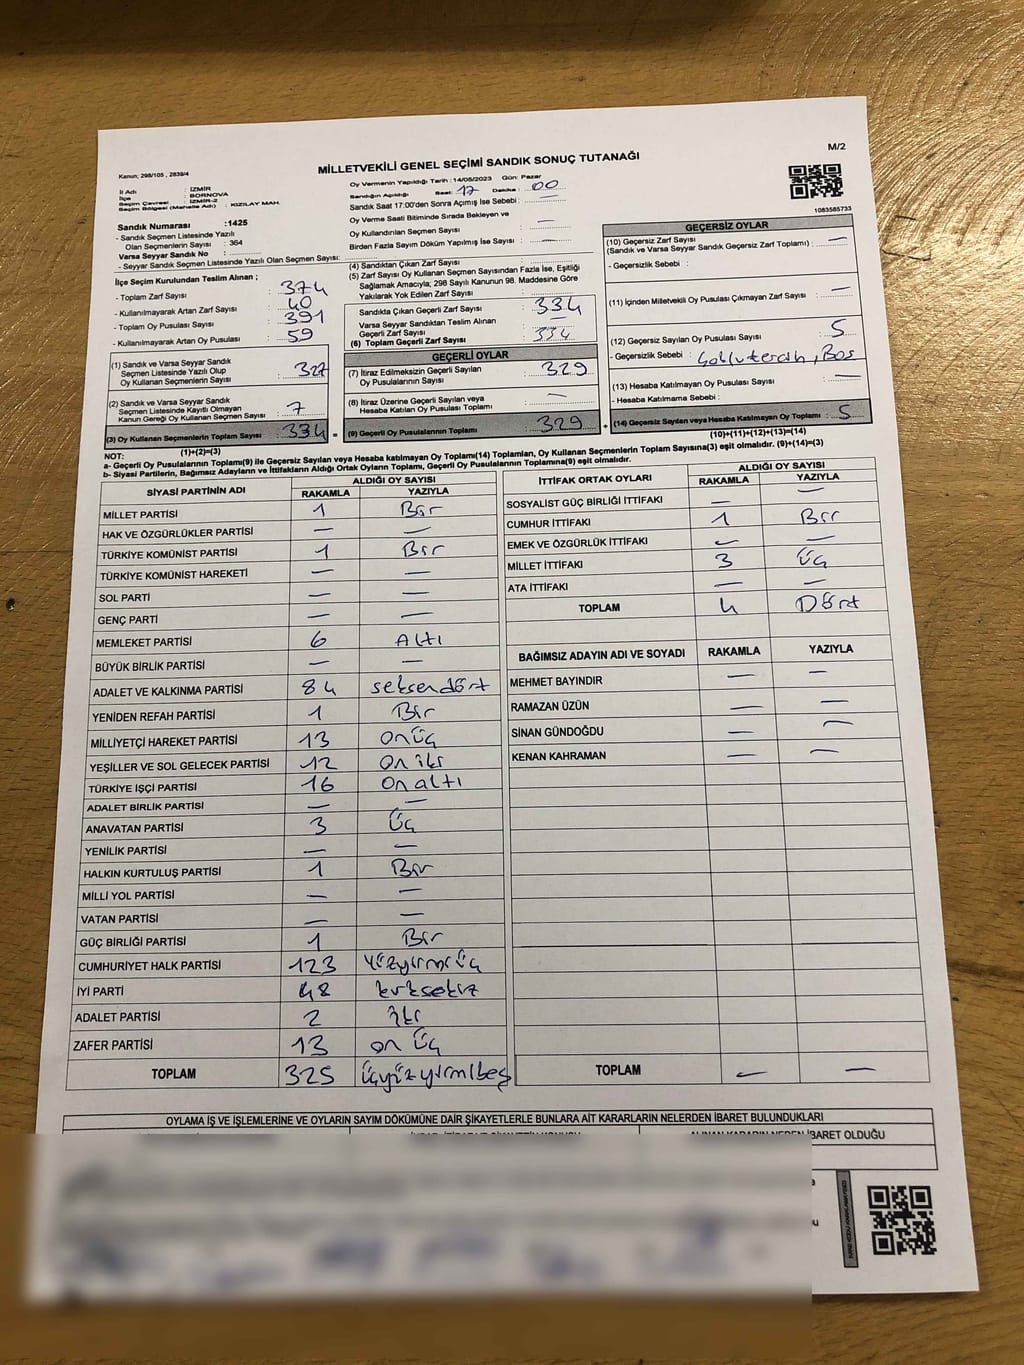 M/2
MİLLETVEKİLİ GENEL SEÇİMİ SANDIK SONUÇ TUTANAĞI
Kanun; 298/105 , 2839/4
İl Adı : İZMİR
İlçe : BORNOVA
Seçim Çevresi : İZMİR-2
Seçim Bölgesi (Mahalle Adı) : KIZILAY MAH.
Sandık Numarası :1425
- Sandık Seçmen Listesinde Yazılı
Olan Seçmenlerin Sayısı : 364
Varsa Seyyar Sandık No :
- Seyyar Sandık Seçmen Listesinde Yazılı Olan Seçmen Sayısı:
Oy Vermenin Yapıldığı Tarih : 14/05/2023 Gün: Pazar
Sandığın Açıldığı Saat: 17 Dakika: 00
Sandık Saat 17:00'den Sonra Açımış İse Sebebi : —
Oy Verme Saati Bitiminde Sırada Bekleyen ve
Oy Kullandırılan Seçmen Sayısı : —
Birden Fazla Sayım Döküm Yapılmış İse Sayısı : —
1083585733
İlçe Seçim Kurulundan Teslim Alınan ;
- Toplam Zarf Sayısı : 374
- Kullanılmayarak Artan Zarf Sayısı : 40
- Toplam Oy Pusulası Sayısı : 391
- Kullanılmayarak Artan Oy Pusulası : 59
(1) Sandık ve Varsa Seyyar Sandık
Seçmen Listesinde Yazılı Olup
Oy Kullanan Seçmenlerin Sayısı : 327
(2) Sandık ve Varsa Seyyar Sandık
Seçmen Listesinde Kayıtlı Olmayan
Kanun Gereği Oy Kullanan Seçmen Sayısı : 7
(3) Oy Kullanan Seçmenlerin Toplam Sayısı : 334 =
(1)+(2)=(3)
(4) Sandıktan Çıkan Zarf Sayısı :
(5) Zarf Sayısı Oy Kullanan Seçmen Sayısından Fazla İse, Eşitliği
Sağlamak Amacıyla; 298 Sayılı Kanunun 98. Maddesine Göre
Yakılarak Yok Edilen Zarf Sayısı :
Sandıkta Çıkan Geçerli Zarf Sayısı : 334
Varsa Seyyar Sandıktan Teslim Alınan
Geçerli Zarf Sayısı : —
(6) Toplam Geçerli Zarf Sayısı : 334
GEÇERLİ OYLAR
(7) İtiraz Edilmeksizin Geçerli Sayılan
Oy Pusulalarının Sayısı : 329
(8) İtiraz Üzerine Geçerli Sayılan veya
Hesaba Katılan Oy Pusulası Toplamı : —
(9) Geçerli Oy Pusulalarının Toplamı : 329 +
GEÇERSİZ OYLAR
(10) Geçersiz Zarf Sayısı
(Sandık ve Varsa Seyyar Sandık Geçersiz Zarf Toplamı) : —
- Geçersizlik Sebebi :
(11) İçinden Milletvekili Oy Pusulası Çıkmayan Zarf Sayısı : —
(12) Geçersiz Sayılan Oy Pusulası Sayısı : 5
- Geçersizlik Sebebi : Boş
(13) Hesaba Katılmayan Oy Pusulası Sayısı : —
- Hesaba Katılmama Sebebi :
(14) Geçersiz Sayılan veya Hesaba Katılmayan Oy Toplamı : 5
(10)+(11)+(12)+(13)=(14)
NOT:
a- Geçerli Oy Pusulalarının Toplamı(9) ile Geçersiz Sayılan veya Hesaba katılmayan Oy Toplamı(14) Toplamları, Oy Kullanan Seçmenlerin Toplam Sayısına(3) eşit olmalıdır. (9)+(14)=(3)
b- Siyasi Partilerin, Bağımsız Adayların ve İttifakların Aldığı Ortak Oyların Toplamı, Geçerli Oy Pusulalarının Toplamına(9) eşit olmalıdır.
SİYASİ PARTİNİN ADI ALDIĞI OY SAYISI
RAKAMLA YAZIYLA
MİLLET PARTİSİ 1 Bir
HAK VE ÖZGÜRLÜKLER PARTİSİ — —
TÜRKİYE KOMÜNİST PARTİSİ 1 Bir
TÜRKİYE KOMÜNİST HAREKETİ — —
SOL PARTİ — —
GENÇ PARTİ — —
MEMLEKET PARTİSİ 6 Altı
BÜYÜK BİRLİK PARTİSİ — —
ADALET VE KALKINMA PARTİSİ 84 seksendört
YENİDEN REFAH PARTİSİ 1 Bir
MİLLİYETÇİ HAREKET PARTİSİ 13 onüç
YEŞİLLER VE SOL GELECEK PARTİSİ 12 on iki
TÜRKİYE İŞÇİ PARTİSİ 16 on altı
ADALET BİRLİK PARTİSİ — —
ANAVATAN PARTİSİ 3 Üç
YENİLİK PARTİSİ — —
HALKIN KURTULUŞ PARTİSİ 1 Bir
MİLLİ YOL PARTİSİ — —
VATAN PARTİSİ — —
GÜÇ BİRLİĞİ PARTİSİ 1 Bir
CUMHURİYET HALK PARTİSİ 123 yüzyirmiüç
İYİ PARTİ 48 kırksekiz
ADALET PARTİSİ 2 İki
ZAFER PARTİSİ 13 on üç
TOPLAM 325 üçyüzyirmibeş
İTTİFAK ORTAK OYLARI ALDIĞI OY SAYISI
RAKAMLA YAZIYLA
SOSYALİST GÜÇ BİRLİĞİ İTTİFAKI — —
CUMHUR İTTİFAKI 1 Bir
EMEK VE ÖZGÜRLÜK İTTİFAKI — —
MİLLET İTTİFAKI 3 Üç
ATA İTTİFAKI — —
TOPLAM 4 Dört
BAĞIMSIZ ADAYIN ADI VE SOYADI RAKAMLA YAZIYLA
MEHMET BAYINDIR — —
RAMAZAN ÜZÜN — —
SİNAN GÜNDOĞDU — —
KENAN KAHRAMAN — —
TOPLAM — —
OYLAMA İŞ VE İŞLEMLERİNE VE OYLARIN SAYIM DÖKÜMÜNE DAİR ŞİKAYETLERLE BUNLARA AİT KARARLARIN NELERDEN İBARET BULUNDUKLARI
ALINAN KARARIN NEDEN İBARET OLDUĞU